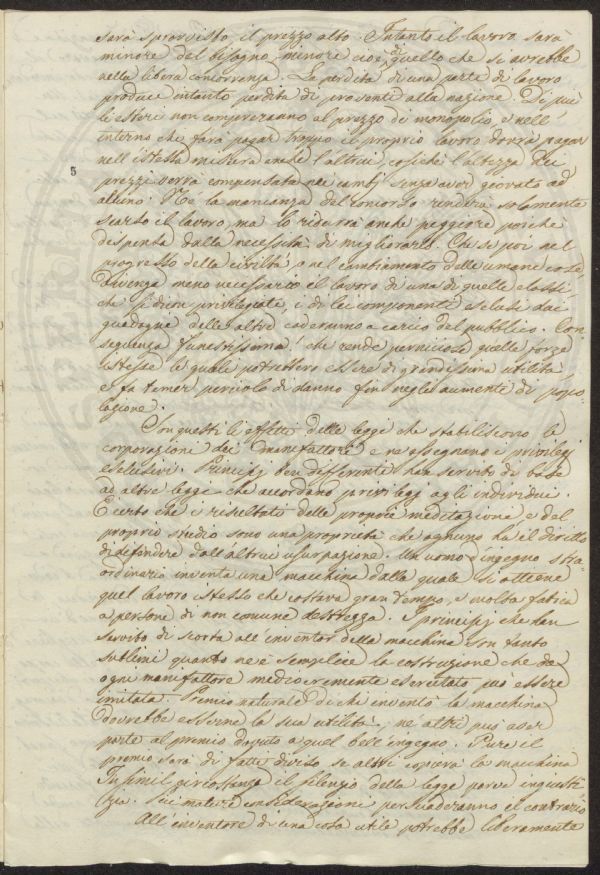 sarà sprovvisto il prezzo alto. Intanto il lavoro sarà
minore del bisogno, minore cioè di quello che si avrebbe
nella libera concorrenza. La perdita di una parte di lavoro
produce intanto perdita di proventi alla nazione. Di più
li esteri non compreranno al prezzo di monopolio, e nell'
interno chi farà pagar troppo il proprio lavoro dovrà pagar
nell'istessa misura anche l'altrui cosichè l'altezza dei
5
prezzi verrà compensata nei cambj senza aver giovato ad
alcuno. Nè la mancanza del concorso renderà solamente
scarso il lavoro, ma lo ridurrà anche peggiore poichè
dispensa dalla necessità di migliorarlo. Che se poi nel
progresso della civiltà, o nel cambiamento delle umane cose
divenga meno necessario il lavoro di una di quelle classi
che si dicon privilegiate, i di lei componenti esclusi dai
guadagni delle altre caderanno a carico del pubblico. Con
seguenza funestissima! che rende perniciose quelle forze
istesse le quali potrebbero essere di grandissima utilità
e fa temer pericolo di danno fin negli aumenti di popo-
lazione.
Son questi li effetti delle leggi che stabiliscono le
corporazioni dei manifattori e ne assegnano i privilegj
esclusivi. Principj ben differenti han servito di base
ad altre leggi che accordano privilegj agli individui.
È certo che i risultati delle proprie meditazioni e del
proprio studio sono una proprietà che ognuno ha il diritto
di difendere dall'altrui usurpazione. Un uomo d'ingegno stra-
ordinario inventa una macchina dalla quale si ottiene
quel lavoro istesso che costava gran tempo, e molta fatica
a persone di non comune destrezza. I principj che han
servito di scorta all'inventor della macchina son tanto
sublimi quanto ne è semplice la costruzione che da
ogni manifattore mediocremente esercitato può essere
imitata. Premio naturale di chi inventò la macchina
dovrebbe esserne la sua utilità, nè altri può aver
parte al premio dovuto a quel bell'ingegno. Pure il
premio sarà di fatti diviso se altri copierà la macchina
In simil circostanza il silenzio della legge parve ingiusti-
zia. Più mature considerazioni persuaderanno il contrario
All'inventore di una cosa utile potrebbe liberamente